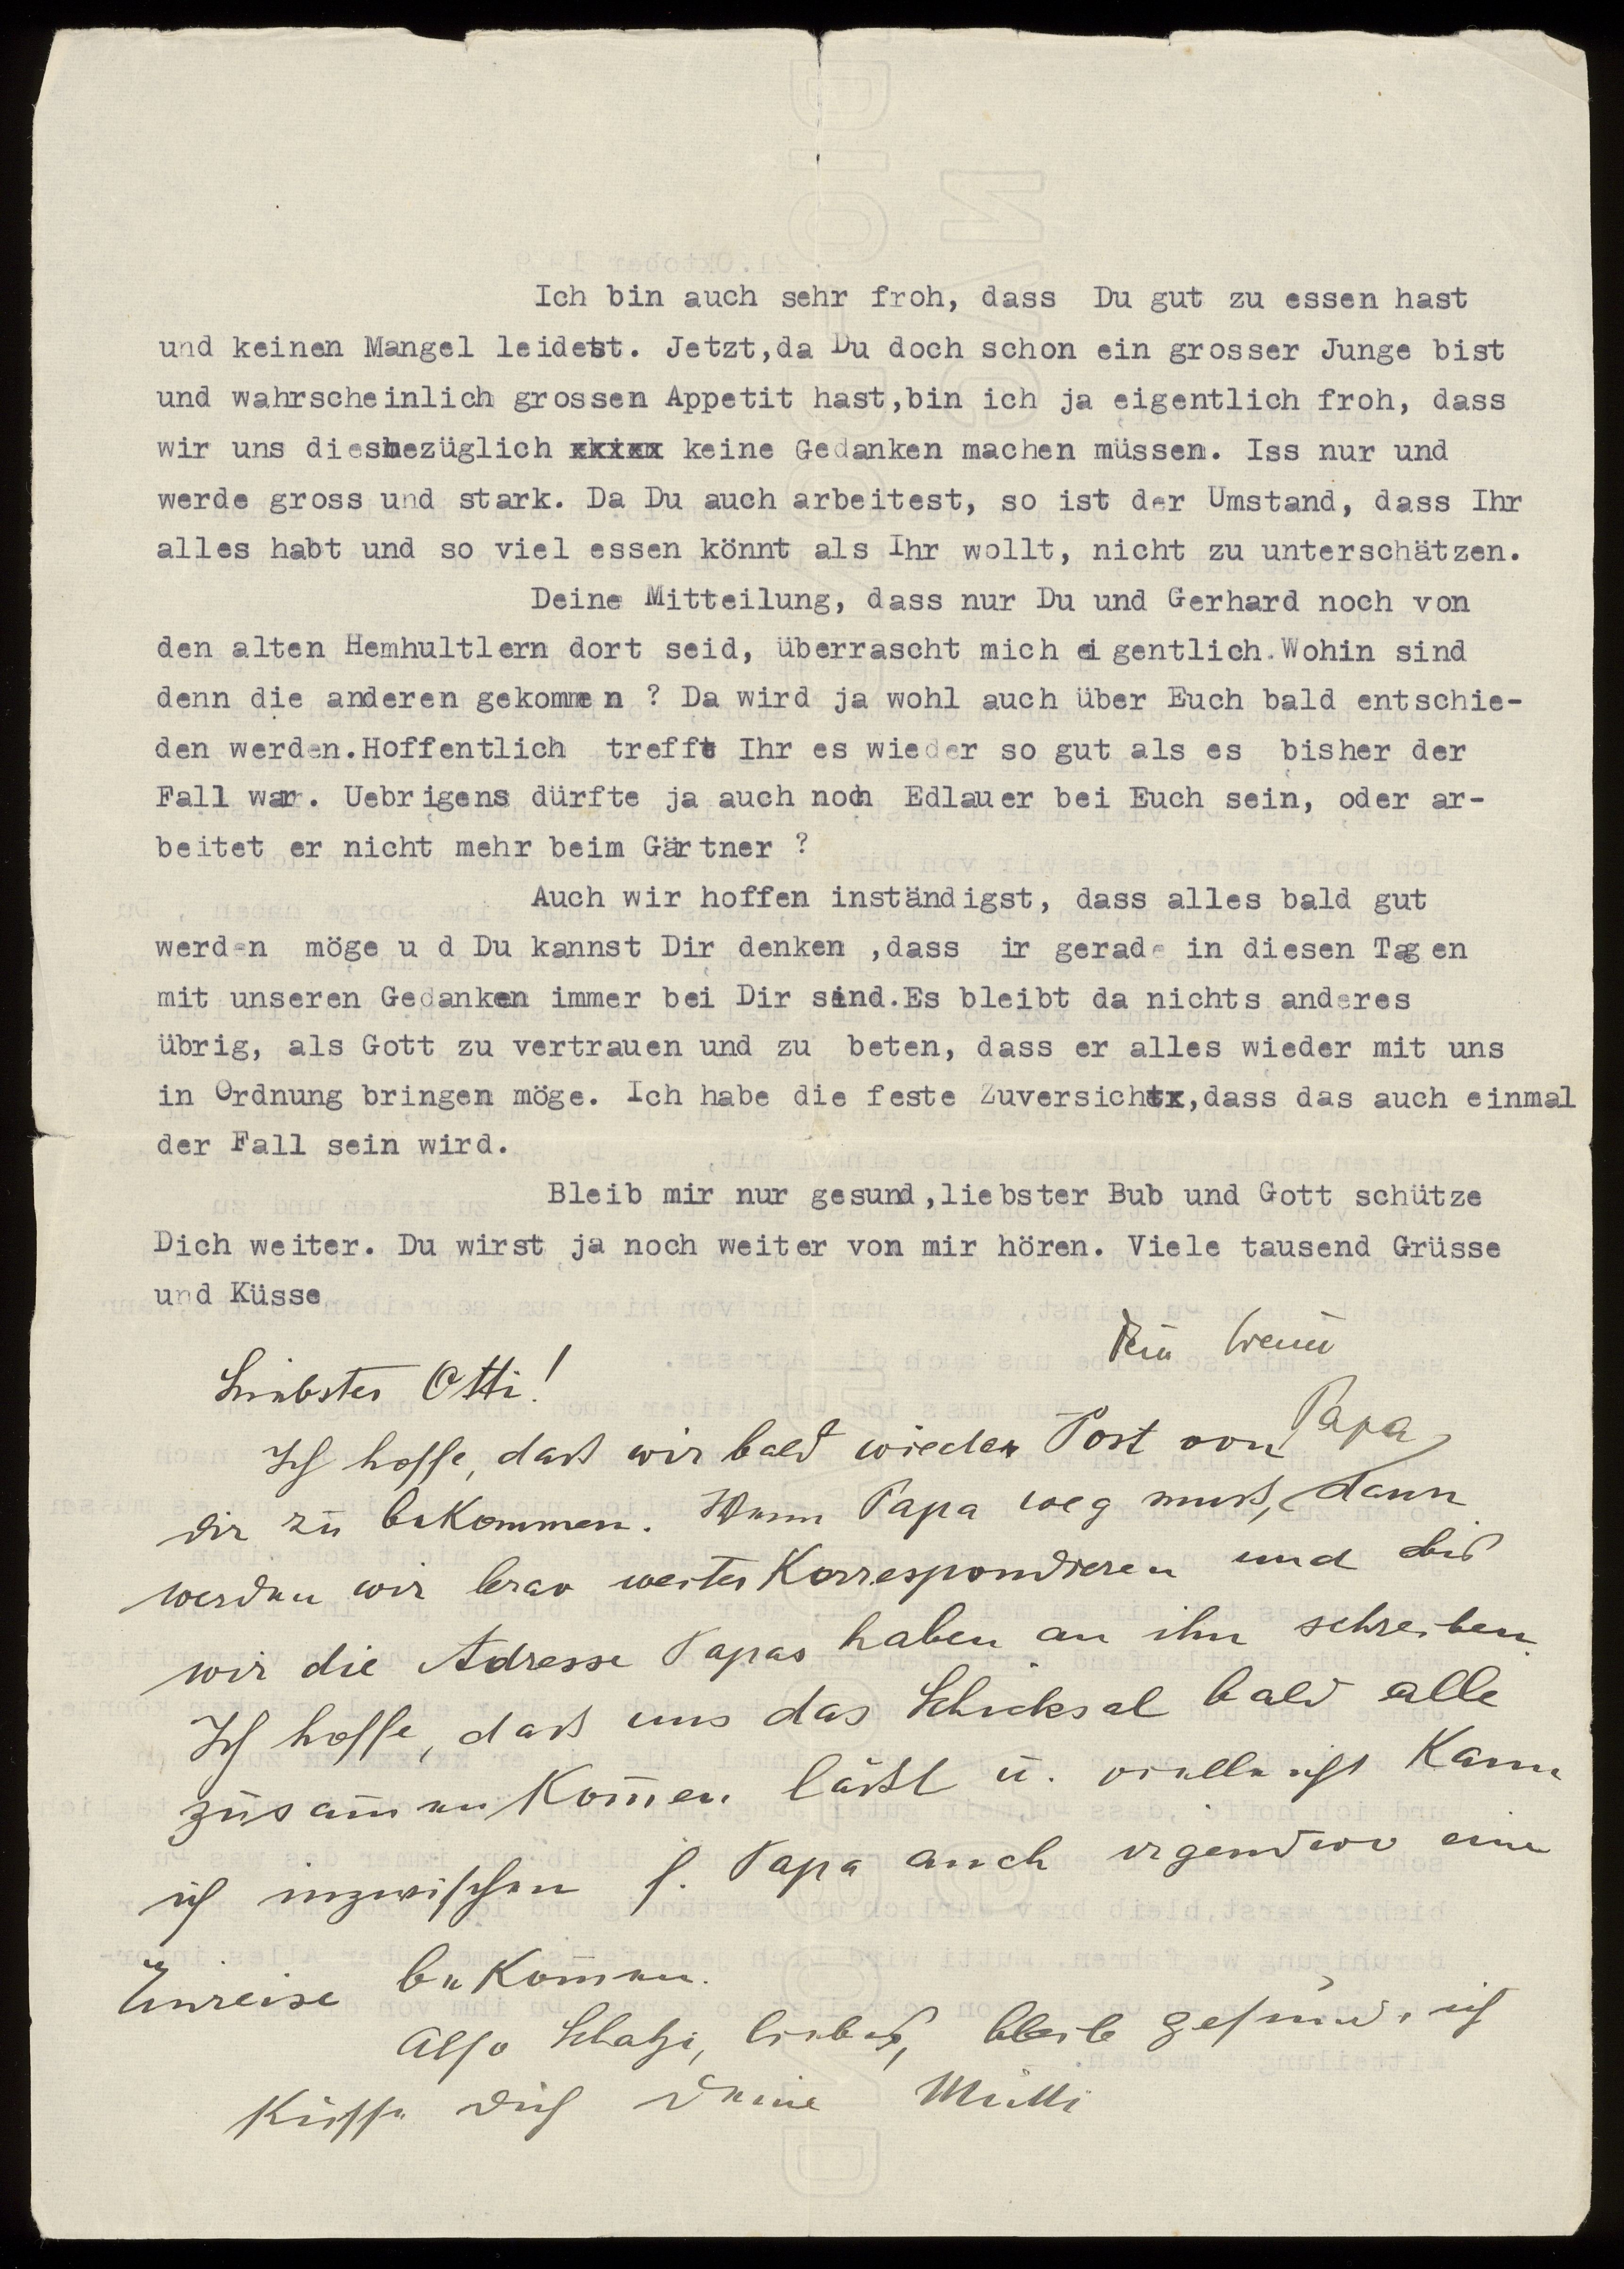 Ich bin auch sehr froh, dass Du gut zu essen hast
und keinen Mangel leidest. Jetzt,da Du doch schon ein grosser Junge bist
und wahrscheinlich grossen Appetit hast,bin ich ja eigentlich froh, dass
wir uns diesbezüglich xxixx keine Gedanken machen müssen. Iss nur und
werde gross und stark. Da Du auch arbeitest, so ist der Umstand, dass Ihr
alles habt und so viel essen könnt als Ihr wollt, nicht zu unterschätzen.
Deine Mitteilung, dass nur Du und Gerhard noch von
den alten Hemhultlern dort seid, überrascht mich eigentlich.Wohin sind
denn die anderen gekommen ? Da wird ja wohl auch über Euch bald entschie-
den werden.Hoffentlich trefft Ihr es wieder so gut als es bisher der
Fall war. Uebrigens dürfte ja auch noch Edlauer bei Euch sein, oder ar-
beitet er nicht mehr beim Gärtner ?
Auch wir hoffen inständigst, dass alles bald gut
werden möge u d Du kannst Dir denken ,dass ir gerade in diesen Tagen
mit unseren Gedanken immer bei Dir sind.Es bleibt da nichts anderes
übrig, als Gott zu vertrauen und zu beten, dass er alles wieder mit uns
in Ordnung bringen möge. Ich habe die feste Zuversichtx,dass das auch einmal
der Fall sein wird.
Bleib mir nur gesund,liebster Bub und Gott schütze
Dich weiter. Du wirst ja noch weiter von mir hören. Viele tausend Grüsse
und Küsse
Dein treuer
Papa
Liebster Otti!
Ich hoffe, daß wir bald wieder Post von
dir zu bekommen. Wenn Papa weg muß, dann
werden wir brav weiter Korrespondieren und bis
wir die Adresse Papas haben an ihn schreiben.
Ich hoffe, daß uns das Schicksal bald alle
zusammen Kom̅en läßt u. vielleicht Kann
ich inzwischen f. Papa auch irgendwo eine
Einreise beKom̅en.
Also Schatzi, liebes, bleib gesund, ich
Küsse dich deine Mutti